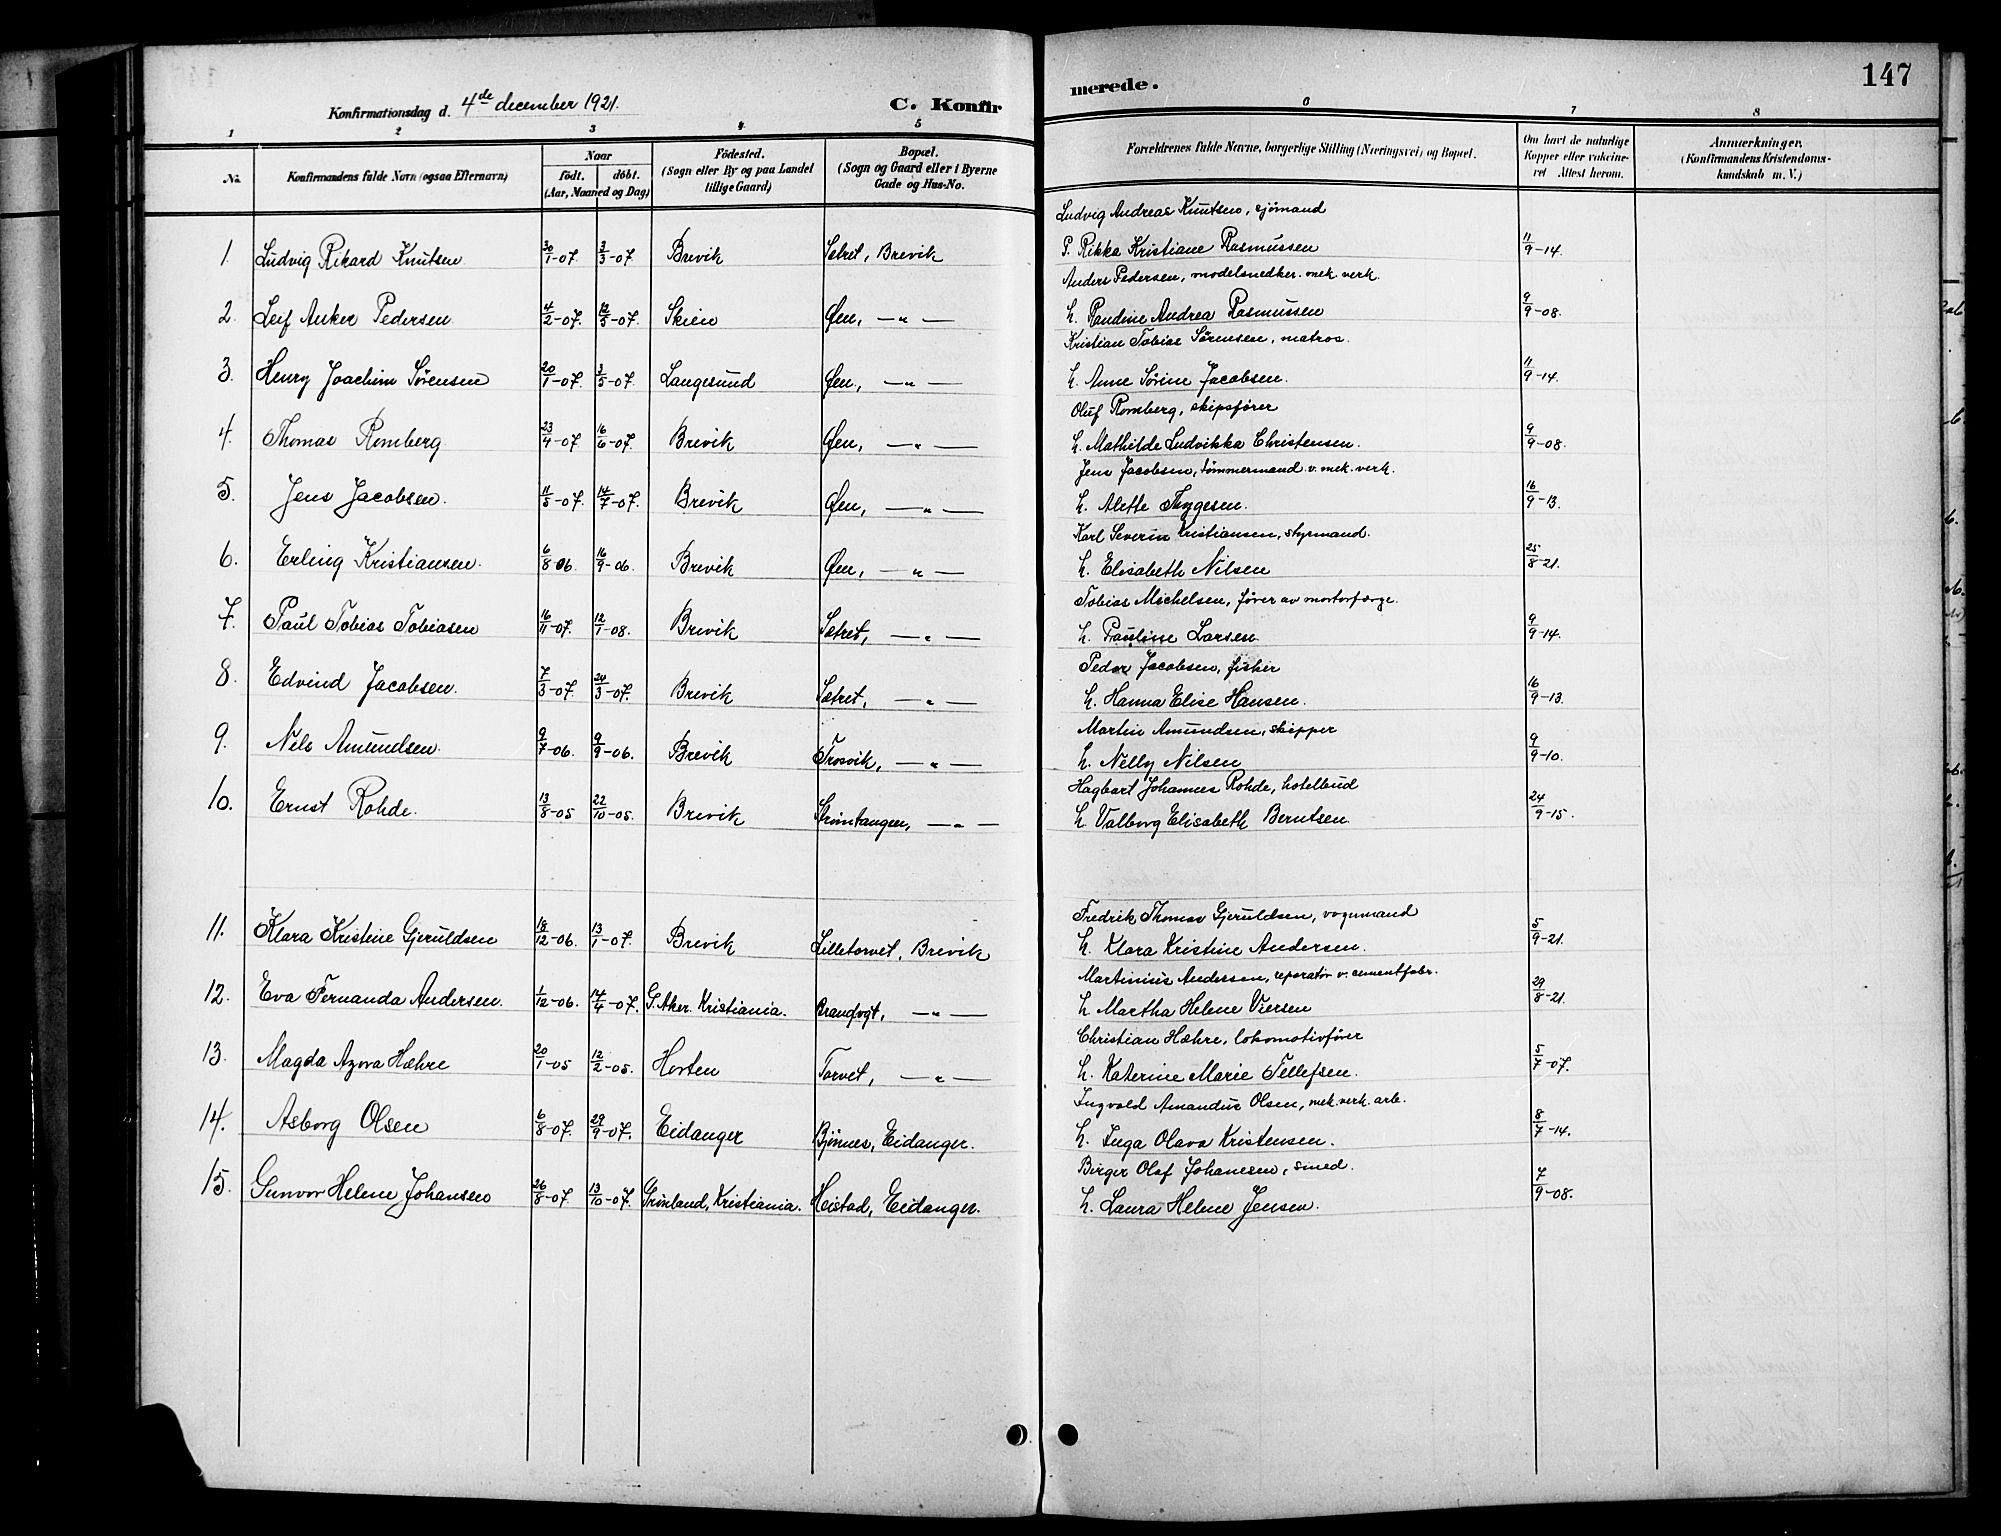 147
Konfirmationsdag d. 4de december 1921.
C. Konfirmerede.
1 2 3 4 5 6 7 8
No. Konfirmandens fulde Navn (ogsaa Efternavn) Naar födt. döbt. (Aar, Maaned og Dag) Födested. (Sogn eller By og paa Landet tillige Gaard) Bopæl. (Sogn og Gaard eller i Byerne Gade og Hus-No. Forældrenes fulde Navne, borgerlige Stilling (Næringsvei) og Bopæl. Om havt de naturlige Kopper eller vakcineret Attest herom. Anmærkninger, (Konfirmandens Kristendomskundskab m. V.)
Ludvig Andreas Knutsen, sjömand
1. Ludvig Rikard Knutsen 30/1-07. 3/3-07. Brevik Setret, Brevik P. Rikka Kristiane Rasmussen 11/9-14.
Anders Pedersen, modelsnedker. mek. verk.
2. Leif Anker Pedersen 4/2-07. 12/5-07. Skien Øen, —„— h. Randine Andrea Rasmussen 9/9-08.
Kristian Tobias Sörensen, matros.
3. Henry Joachim Sörensen 20/1-07. 3/5-07. Langesund Øen, —„— h. Anne Sörine Jacobsen. 11/9-14.
Oluf Romberg, skipsfører
4. Thomas Romberg 23/4-07. 16/6-07. Brevik Øen, —„— h. Mathilde Ludvikka Christensen. 9/9-08.
Jens Jacobsen, tömmermand v. mek. verk.
5. Jens Jacobsen. 11/5-07. 14/7-07. Brevik Øen, —„— h. Alette Thygesen. 16/9-13.
Karl Severin Kristiansen, styrmand.
6. Erling Kristiansen. 6/8-06. 16/9-06. Brevik Øen, —„— h. Elisabeth Nilsen 25/8-21.
Tobias Michelsen, fører av mortorfærge.
7. Paul Tobias Tobiasen 16/11-07. 12/1-08. Brevik Setret, —„— h. Pauline Larsen 9/9-14.
Peder Jacobsen, fisker
8. Edvind Jacobsen. 7/3-07. 24/3-07. Brevik Setret, —„— h. Hanna Elise Hansen. 16/9-13.
Martin Amundsen, skipper
9. Nils Amundsen. 9/7-06. 9/9-06. Brevik Trosvik, —„— h. Nelly Nilsen 9/9-10.
Hagbart Johannes Rohde, hotelbud
10. Ernst Rohde. 13/8-05 22/10-05. Brevik Strömtangen, —„— h. Valborg Elisabeth Berntsen 24/9-15.
Fredrik Thomas Gjeruldsen, vognmand
11. Klara Kristine Gjeruldsen 18/12-06. 13/1-07. Brevik Lilletorvet, Brevik h. Klara Kristine Andersen. 5/9-21.
Martinius Andersen, reparatör v. cementfabr.
12. Eva Fernanda Andersen. 1/12-06. 14/4-07. G. Aker. Kristiania. Brandvgt, —„— h. Martha Helene Viersen 29/8-21.
Christian Hæhre, lokomotivfører
13. Magda Azora Hæhre 20/1-05 12/2-05. Horten Torvet, —„— h. Katerine Marie Tellefsen. 5/7-07.
Ingvold Amandus Olsen, mek. verk. arb.
14. Asborg Olsen 6/8-07. 29/9-07. Eidanger Björnes, Eidanger. h. Inga Olava Kristensen. 8/7-14.
Birger Olaf Johansen, smed.
15. Gunvor Helene Johansen 26/8-07. 13/10-07. Grönland, Kristiania. Heistad, Eidanger. h. Laura Helene Jensen. 7/9-08.